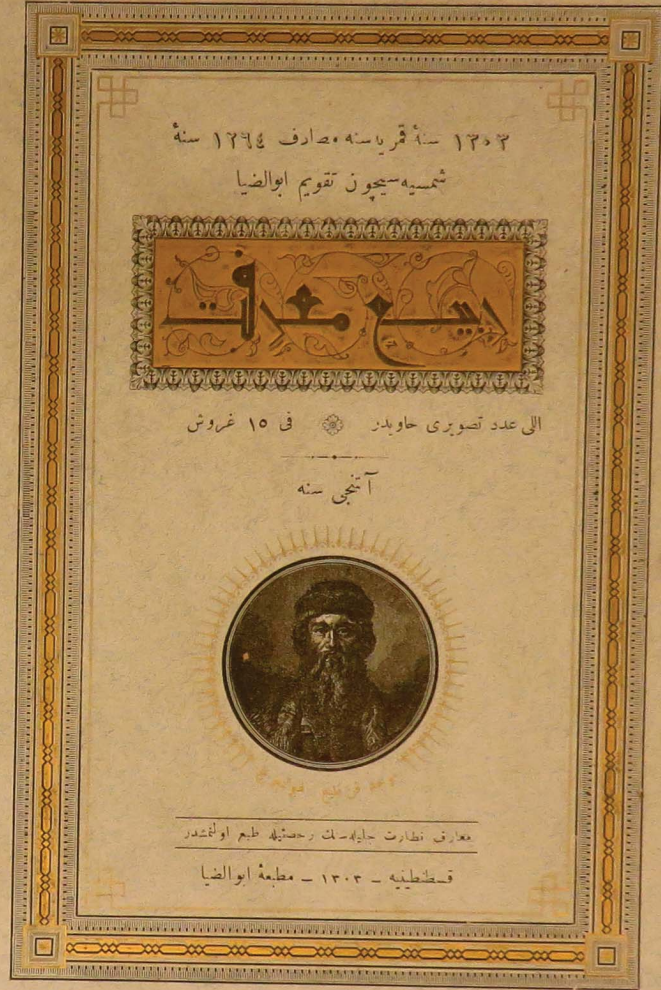 ١٣٠٣ سنۀ قمریه‌سنه مصادف ١٢٦٤ سنۀ
شمسیه‌سیچون تقویم ابوالضیا
ربیع معرفت
اللی عدد تصویری حاویدر فی ١٥ غروش
آلتنجی سنه
معارف نظارت جلیله‌سنك رخصتیله طبع اولنمشدر
قسطنطینیه – ١٣٠٣ – مطبعۀ ابوالضیا